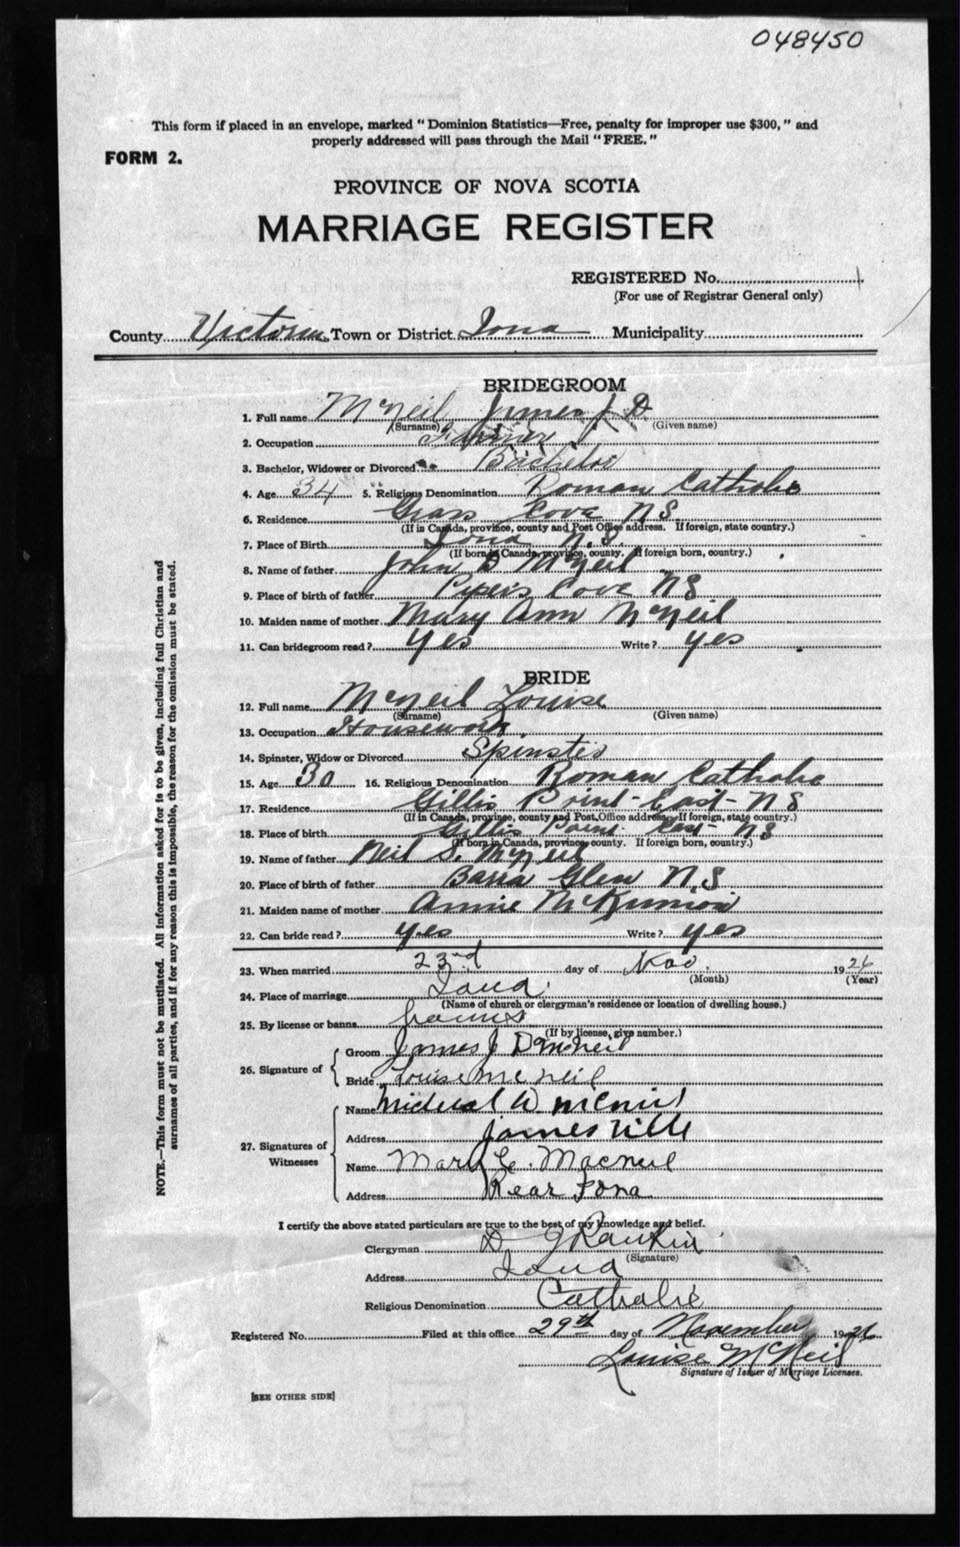 048450
This form if placed in an envelope, marked "Dominion Statistics—Free, penalty for improper use $300," and
properly addressed will pass through the Mail "FREE."
FORM 2.
PROVINCE OF NOVA SCOTIA
MARRIAGE REGISTER
REGISTERED No.
(For use of Registrar General only)
County Victoria Town or District Iona Municipality
BRIDEGROOM
1. Full name McNeil James J. D.
(Surname) (Given name)
2. Occupation Farmer
3. Bachelor, Widower or Divorced Bachelor
4. Age 34 5. Religious Denomination Roman Catholic
6. Residence Grass Cove N S
(If in Canada, province, county and Post Office address. If foreign, state country.)
7. Place of Birth Iona N. S.
(If born in Canada, province, county. If foreign born, country.)
8. Name of father John D McNeil
9. Place of birth of father Pipers Cove N S
10. Maiden name of mother Mary Ann McNeil
11. Can bridegroom read? Yes Write? Yes
BRIDE
12. Full name McNeil Louise
(Surname) (Given name)
13. Occupation Housework
14. Spinster, Widow or Divorced Spinster
15. Age 30 16. Religious Denomination Roman Catholic
17. Residence Gillis Point - East - N S
(If in Canada, province, county and Post Office address. If foreign, state country.)
18. Place of birth Gillis Point East - N S
(If born in Canada, province, county. If foreign born, country.)
19. Name of father Neil S. McNeil
20. Place of birth of father Barra Glen N. S
21. Maiden name of mother Annie McKinnon
22. Can bride read? Yes Write? Yes
23. When married 23rd day of Nov. 1926
(Month) (Year)
24. Place of marriage Iona
(Name of church or clergyman's residence or location of dwelling house.)
25. By license or banns banns
(If by license, give number.)
26. Signature of
Groom James J D McNeil
Bride Louise McNeil
27. Signatures of Witnesses
Name Micheal D. McNeil
Address Jamesville
Name Mary C. Macneil
Address Rear Iona
I certify the above stated particulars are true to the best of my knowledge and belief.
Clergyman D J Rankin
(Signature)
Address Iona
Religious Denomination Catholic
Registered No. Filed at this office 29th day of November 1926
Louise McNeil
Signature of Issuer of Marriage Licenses.
[SEE OTHER SIDE]
NOTE.—This form must not be mutilated. All information asked for is to be given, including full Christian and
surnames of all parties, and if for any reason this is impossible, the reason for the omission must be stated.